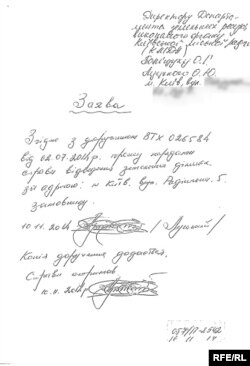 Директору Департа-
мента земельних ресурсів
виконавчого органу
Київської міської ради
(КМДА)
Поліщуку О.Г.
Луцького О.Ю.
м. Київ, вул.
Заява
Згідно з дорученням ВТХ 026524
від 02.07.2014р. прошу передати
справи відведення земельних ділянки
за адресою: м. Київ, вул. Радіальна, 5
Замовнику.
10.11.2014 /Луцький/
Копія доручення додається.
Справи отримав
10.11.2014
057/П-2542
10 11 14
RFE/RL